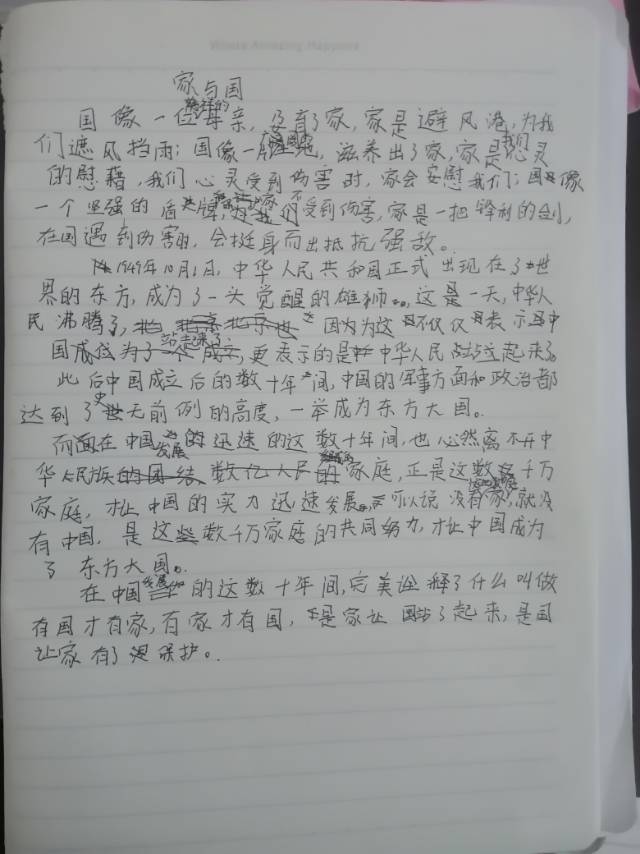 Where Amazing Happens
家与国
国像一位慈祥的母亲，孕育了家，家是避风港，为我
们遮风挡雨；国像一片，滋养出了家，家是我们心灵
的慰藉，我们心灵受到伤害时，家会安慰我们；国像
一个坚强的盾牌，我们不受到伤害，家是一把锋利的剑，
在国遇到伤害时，会挺身而出抵抗强敌。
1949年10月1日，中华人民共和国正式出现在了世
界的东方，成为了一头觉醒的雄狮。这是一天，中华人
民沸腾了，因为这不仅仅表示中
国成立站起来了，更表示的是中华人民站起来了。
此后中国成立后的数十年间，中国的军事方面和政治都
达到了史无前例的高度，一举成为东方大国。
而在中国发展迅速的这数十年间，也必然离不开中
华人民族的家庭，正是这数千万
家庭，才让中国的实力迅速发展。可以说没有家，就没
有中国，是这些数千万家庭的共同努力，才让中国成为
了东方大国。
在中国发展的这数十年间，完美诠释了什么叫做
有国才有家，有家才有国，是家让国站了起来，是国
让家有了保护。